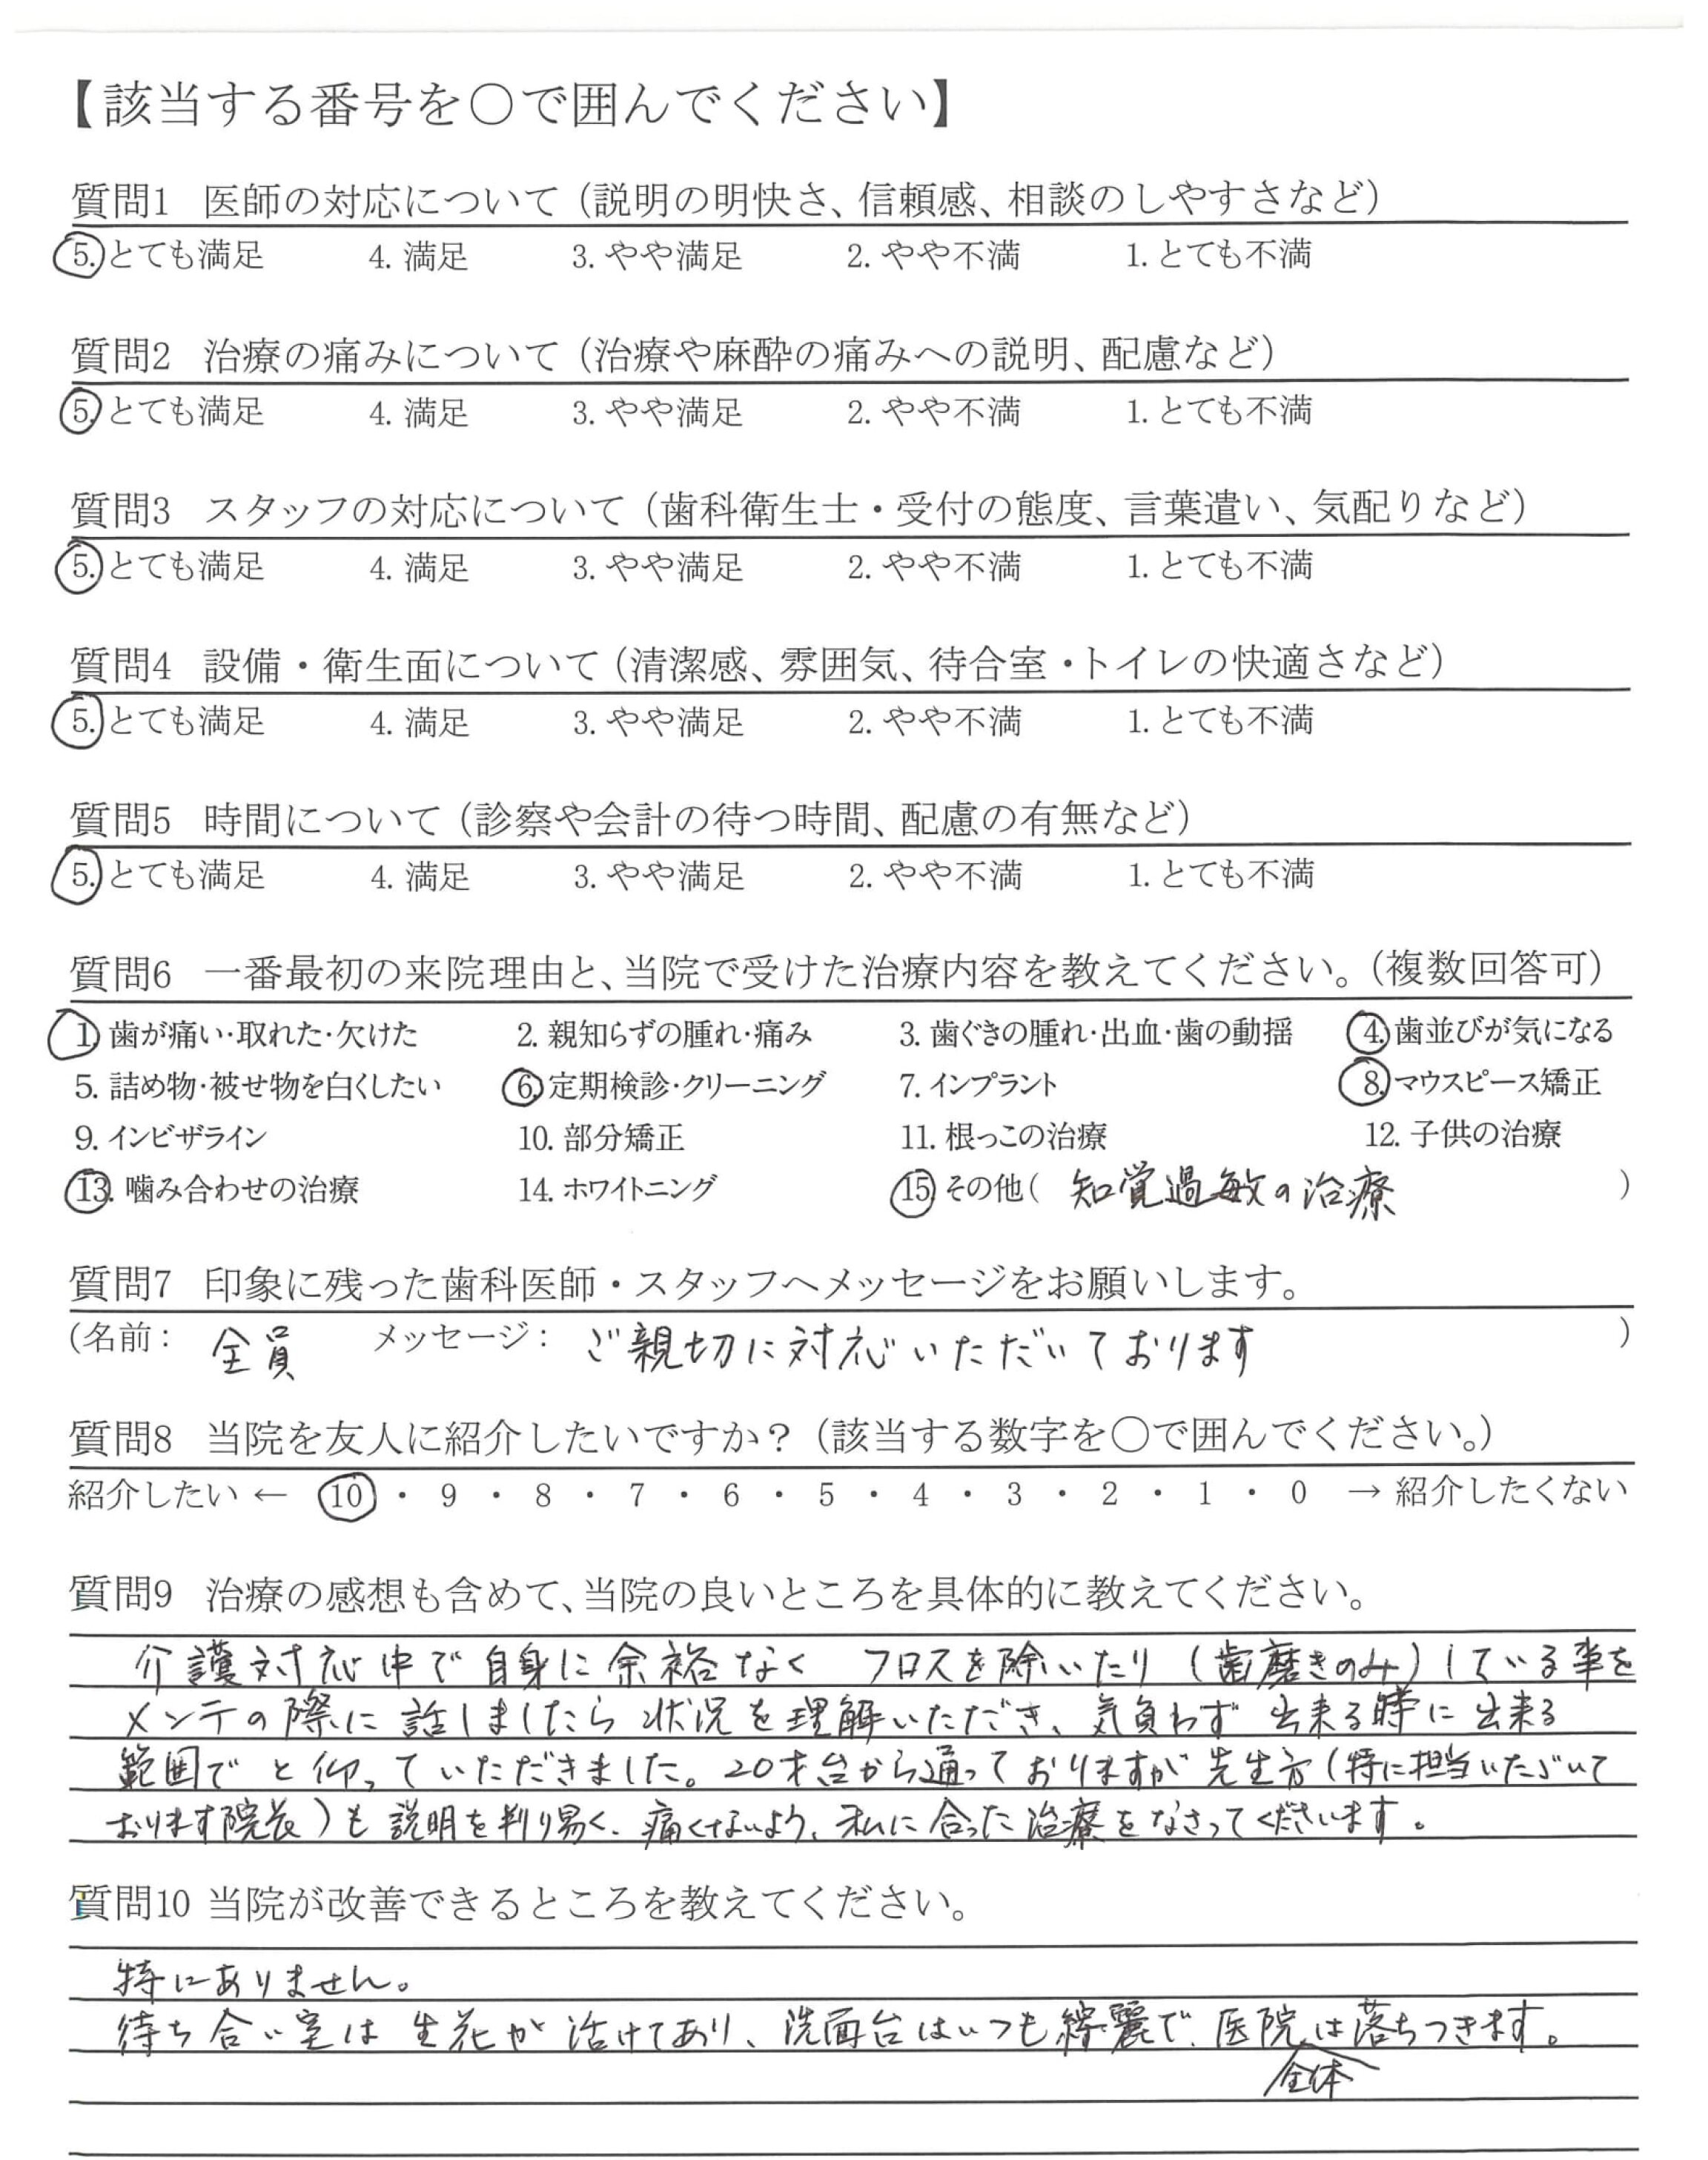 【該当する番号を○で囲んでください】
質問1 医師の対応について（説明の明快さ、信頼感、相談のしやすさなど）
5. とても満足 4. 満足 3. やや満足 2. やや不満 1. とても不満
質問2 治療の痛みについて（治療や麻酔の痛みへの説明、配慮など）
5. とても満足 4. 満足 3. やや満足 2. やや不満 1. とても不満
質問3 スタッフの対応について（歯科衛生士・受付の態度、言葉遣い、気配りなど）
5. とても満足 4. 満足 3. やや満足 2. やや不満 1. とても不満
質問4 設備・衛生面について（清潔感、雰囲気、待合室・トイレの快適さなど）
5. とても満足 4. 満足 3. やや満足 2. やや不満 1. とても不満
質問5 時間について（診察や会計の待つ時間、配慮の有無など）
5. とても満足 4. 満足 3. やや満足 2. やや不満 1. とても不満
質問6 一番最初の来院理由と、当院で受けた治療内容を教えてください。（複数回答可）
1. 歯が痛い・取れた・欠けた 2. 親知らずの腫れ・痛み 3. 歯ぐきの腫れ・出血・歯の動揺 4. 歯並びが気になる
5. 詰め物・被せ物を白くしたい 6. 定期検診・クリーニング 7. インプラント 8. マウスピース矯正
9. インビザライン 10. 部分矯正 11. 根っこの治療 12. 子供の治療
13. 噛み合わせの治療 14. ホワイトニング 15. その他（ 知覚過敏の治療 ）
質問7 印象に残った歯科医師・スタッフへメッセージをお願いします。
（名前： 全員 メッセージ： ご親切に対応いただいております ）
質問8 当院を友人に紹介したいですか？（該当する数字を○で囲んでください。）
紹介したい ← 10 ・ 9 ・ 8 ・ 7 ・ 6 ・ 5 ・ 4 ・ 3 ・ 2 ・ 1 ・ 0 → 紹介したくない
質問9 治療の感想も含めて、当院の良いところを具体的に教えてください。
介護対応中で自身に余裕なく フロスを除いたり（歯磨きのみ）している事を
メンテの際に話しましたら 状況を理解いただき、気負わず 出来る時に出来る
範囲で と仰っていただきました。20才台から通っておりますが 先生方（特に担当いただいて
おります院長）も 説明を判り易く、痛くないよう、私に合った治療をなさってくださいます。
質問10 当院が改善できるところを教えてください。
特にありません。
待ち合い室は 生花が活けてあり、洗面台はいつも綺麗で、医院全体は落ちつきます。